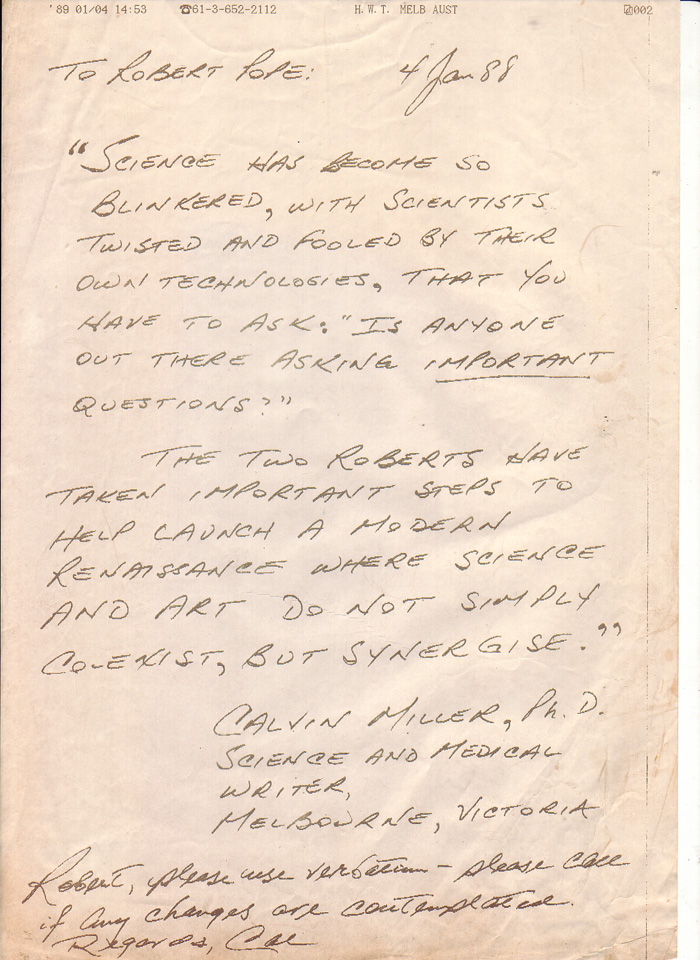 '89 01/04 14:53 ☎61-3-652-2112 H.W.T. MELB AUST 002
TO ROBERT POPE: 4 Jan 88
"SCIENCE HAS BECOME SO
BLINKERED, WITH SCIENTISTS
TWISTED AND FOOLED BY THEIR
OWN TECHNOLOGIES, THAT YOU
HAVE TO ASK: "IS ANYONE
OUT THERE ASKING IMPORTANT
QUESTIONS?"
THE TWO ROBERTS HAVE
TAKEN IMPORTANT STEPS TO
HELP LAUNCH A MODERN
RENAISSANCE WHERE SCIENCE
AND ART DO NOT SIMPLY
COEXIST, BUT SYNERGISE."
CALVIN MILLER, Ph.D.
SCIENCE AND MEDICAL
WRITER,
MELBOURNE, VICTORIA
Robert, please use verbatim – please call
if any changes are contemplated.
Regards, Cal